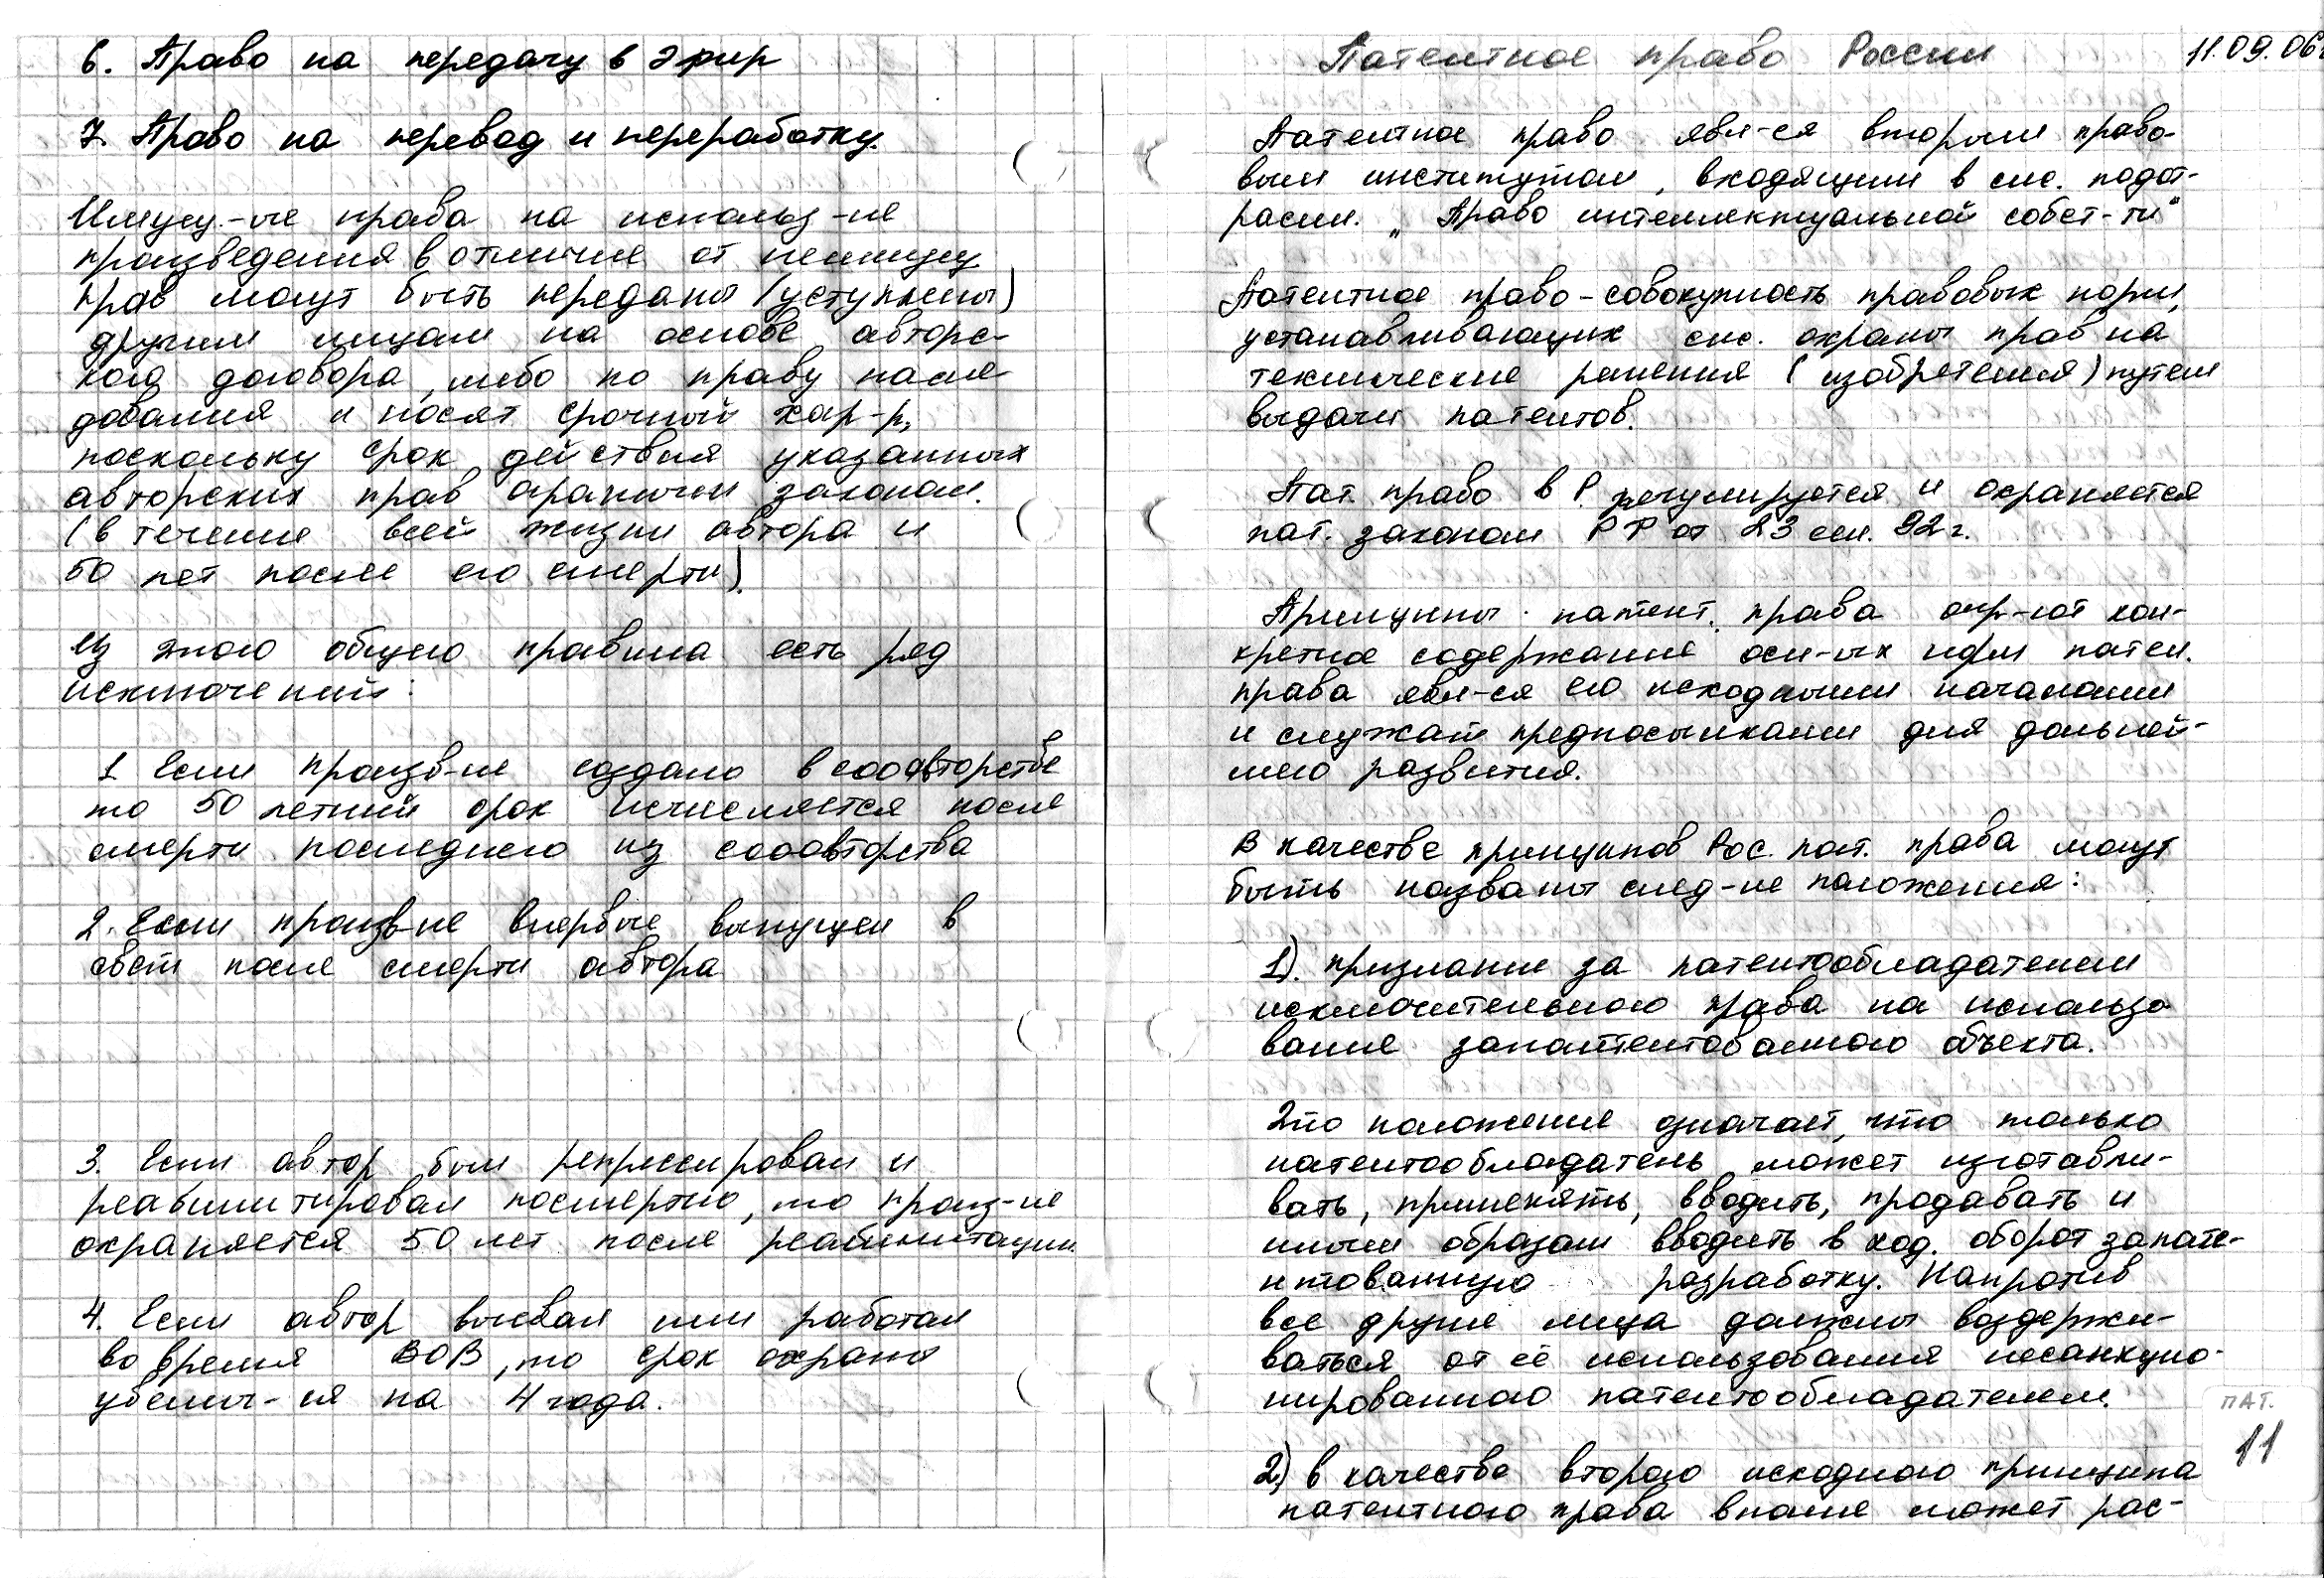 6. Право на передачу в эфир
7. Право на перевод и переработку.
Имущ.-ые права на использ-ие
произведения в отличие от неимущ
прав могут быть переданы (уступлены)
другим лицам на основе авторс-
кого договора, либо по праву насле
дования и носят срочный хар-р,
поскольку срок действия указанных
авторских прав ограничен законом.
(в течение всей жизни автора и
50 лет после его смерти).
Из этого общего правила есть ряд
исключений:
1 Если произв-ие создано в сооавторстве
то 50 летний срок исчисляется после
смерти последнего из сооавторства
2. Если произв-ие впервые выпущен в
свет после смерти автора
3. Если автор был репрессирован и
реабилитирован посмертно, то произ-ие
охраняется 50 лет после реабилитации.
4. Если автор воевал или работал
во время ВОВ, то срок охраны
увелич-ся на 4 года.
Патентное право России 11.09.06г
Патентное право явл-ся вторым право-
вым институтом, входящим в сис. подот-
расли. „Право интеллектуальной собст-ти“
Патентное право - совокупность правовых норм,
устанавливающих сис. охраны прав на
технические решения (изобретения) путем
выдачи патентов.
Пат. право в Р. регулируется и охраняется
пат. законом РФ от 23 сен. 92г.
Принципы патент. права опр-ют кон-
кретное содержание осн-ых норм патен.
права явл-ся его исходными началами
и служат предпосылками для дальней-
шего развития.
В качестве принципов Рос. пат. права могут
быть названы след-ие положения:
1). признание за патентообладателем
исключительного права на использо-
вание запаттентованного объекта.
Это положение означает, что только
патентообладатель может изготавли-
вать, применять, вводить, продавать и
иным образом вводить в ход. оборот запате-
нтованную разработку. Напротив
все другие лица должны воздержи-
ваться от её использования несанкцио-
нированного патентообладателем.
2) в качестве второго исходного принципа
патентного права вполне может рас-
ПАТ.
11